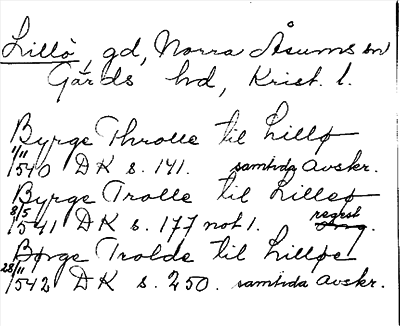 Lillö, gd, Norra Åsums sn
Gärds hd, Krist. l.
Byrge Throlle til Lillø
1/11 1540 DK s. 141. samtida avskr.
Byrge Trolle til Lilløø
8/5 1541 DK s. 177 not 1. regest
Børge Trolde til Lilløe
28/11 1542 DK s. 250. samtida avskr.